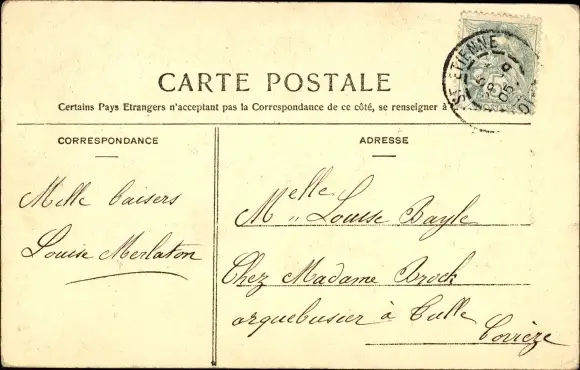 CARTE POSTALE
Certains Pays Etrangers n'acceptant pas la Correspondance de ce côté, se renseigner à
CORRESPONDANCE
Mille baisers
Louise Merlaton
ADRESSE
Melle Louise Bayle
Chez Madame Brock
arquebusier à Tulle
Corrèze
ST ETIENNE